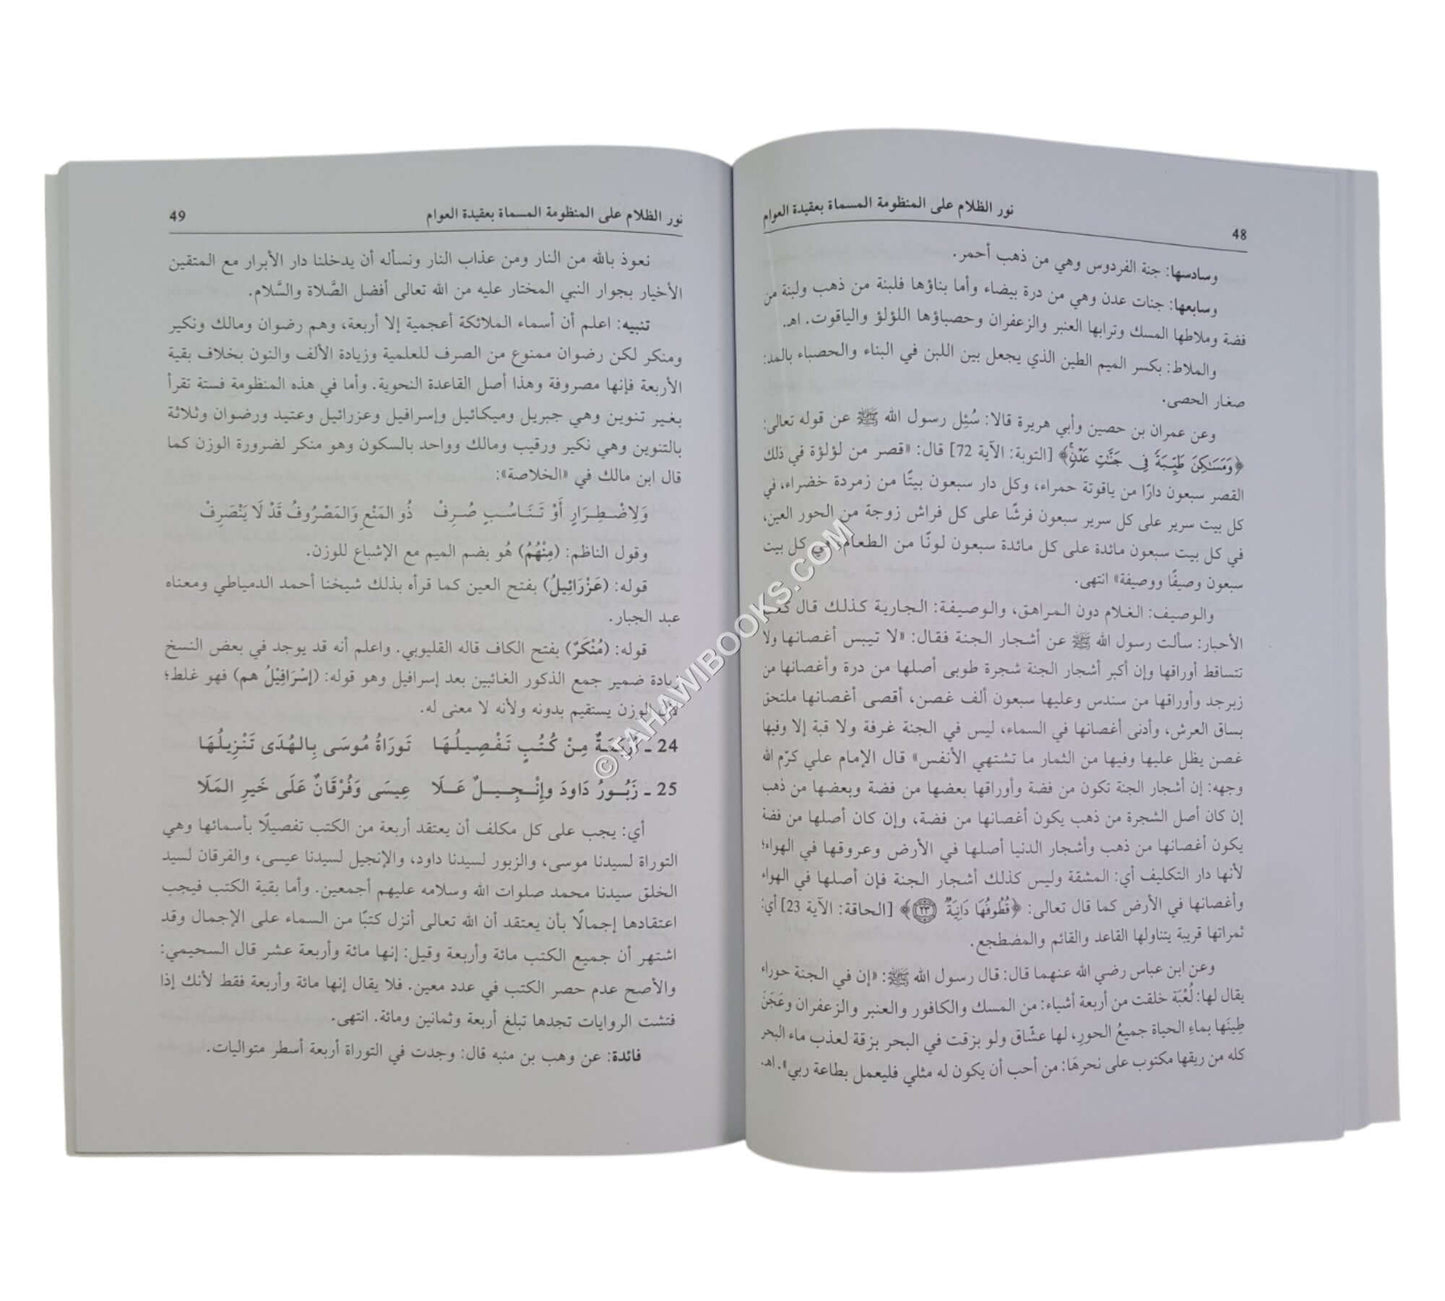 48
نور الظلام على المنظومة المسماة بعقيدة العوام
وسادسها: جنة الفردوس وهي من ذهب أحمر.
وسابعها: جنات عدن وهي من درة بيضاء وأما بناؤها فلبنة من ذهب ولبنة من
فضة وملاطها المسك وترابها العنبر والزعفران وحصباؤها اللؤلؤ والياقوت. اهـ.
والملاط: بكسر الميم الطين الذي يجعل بين اللبن في البناء والحصباء بالمد:
صغار الحصى.
وعن عمران بن حصين وأبي هريرة قالا: سُئِل رسول الله ﷺ عن قوله تعالى:
﴿وَمَسَٰكِنَ طَيِّبَةً فِى جَنَّٰتِ عَدْنٍ﴾ [التوبة: الآية 72] قال: «قصر من لؤلؤة في ذلك
القصر سبعون دارًا من ياقوتة حمراء، وكل دار سبعون بيتًا من زمردة خضراء، في
كل بيت سرير على كل سرير سبعون فرشًا على كل فراش زوجة من الحور العين،
في كل بيت سبعون مائدة على كل مائدة سبعون لونًا من الطعام، في كل بيت
سبعون وصيفًا ووصيفة» انتهى.
والوصيف: الغلام دون المراهق، والوصيفة: الجارية كذلك قال كعب
الأحبار: سألت رسول الله ﷺ عن أشجار الجنة فقال: «لا تيبس أغصانها ولا
تتساقط أوراقها وإن أكبر أشجار الجنة شجرة طوبى أصلها من درة وأغصانها من
زبرجد وأوراقها من سندس وعليها سبعون ألف غصن، أقصى أغصانها ملتحق
بساق العرش، وأدنى أغصانها في السماء، ليس في الجنة غرفة ولا قبة إلا وفيها
غصن يظل عليها وفيها من الثمار ما تشتهي الأنفس» قال الإمام علي كرّم الله
وجهه: إن أشجار الجنة تكون من فضة وأوراقها بعضها من فضة وبعضها من ذهب
إن كان أصل الشجرة من ذهب يكون أغصانها من فضة، وإن كان أصلها من فضة
يكون أغصانها من ذهب وأشجار الدنيا أصلها في الأرض وعروقها في الهواء؛
لأنها دار التكليف أي: المشقة وليس كذلك أشجار الجنة فإن أصلها في الهواء
وأغصانها في الأرض كما قال تعالى: ﴿قُطُوفُهَا دَانِيَةٌ ٢٣﴾ [الحاقة: الآية 23] أي:
ثمراتها قريبة يتناولها القاعد والقائم والمضطجع.
وعن ابن عباس رضي الله عنهما قال: قال رسول الله ﷺ: «إن في الجنة حوراء
يقال لها: لُعْبَة خلقت من أربعة أشياء: من المسك والكافور والعنبر والزعفران وعَجَنَ
طِينَها بماءِ الحياة جميعُ الحورِ، لها عشّاق ولو بزقت في البحر بزقة لعذب ماء البحر
كله من ريقها مكتوب على نحرهَا: من أحب أن يكون له مثلي فليعمل بطاعة ربي». اهـ
نور الظلام على المنظومة المسماة بعقيدة العوام
49
نعوذ بالله من النار ومن عذاب النار ونسأله أن يدخلنا دار الأبرار مع المتقين
الأخيار بجوار النبي المختار عليه من الله تعالى أفضل الصَّلاة والسَّلام.
تنبيه: اعلم أن أسماء الملائكة أعجمية إلا أربعة، وهم رضوان ومالك ونكير
ومنكر لكن رضوان ممنوع من الصرف للعلمية وزيادة الألف والنون بخلاف بقية
الأربعة فإنها مصروفة وهذا أصل القاعدة النحوية. وأما في هذه المنظومة فستة تقرأ
بغير تنوين وهي جبريل وميكائيل وإسرافيل وعزرائيل وعتيد ورضوان وثلاثة
بالتنوين وهي نكير ورقيب ومالك وواحد بالسكون وهو منكر لضرورة الوزن كما
قال ابن مالك في «الخلاصة»:
وَلِاضْطِرَارٍ أَوْ تَنَاسُبٍ صُرِفْ ذُو المَنْعِ وَالمَصْرُوفُ قَدْ لَا يَنْصَرِفْ
وقول الناظم: (مِنْهُمُ) هُو بضم الميم مع الإشباع للوزن.
قوله: (عَزْرَائِيلُ) بفتح العين كما قرأه بذلك شيخنا أحمد الدمياطي ومعناه
عبد الجبار.
قوله: (مُنْكَرٌ) بفتح الكاف قاله القليوبي. واعلم أنه قد يوجد في بعض النسخ
زيادة ضمير جمع الذكور الغائبين بعد إسرافيل وهو قوله: (إسْرَافِيْلُ هم) فهو غلط؛
لأن الوزن يستقيم بدونه ولأنه لا معنى له.
24 ـ أَرْبَعَةٌ مِنْ كُتُبٍ تَفْصِيلُهَا تَوْرَاةُ مُوسَى بِالهُدَى تَنْزِيلُهَا
25 ـ زَبُورُ دَاودَ وإِنْجِيلٌ عَلَا عِيسَى وَفُرْقَانٌ عَلَى خَيرِ المَلَا
أي: يجب على كل مكلف أن يعتقد أربعة من الكتب تفصيلًا بأسمائها وهي
التوراة لسيدنا موسى، والزبور لسيدنا داود، والإنجيل لسيدنا عيسى، والفرقان لسيد
الخلق سيدنا محمد صلوات الله وسلامه عليهم أجمعين. وأما بقية الكتب فيجب
اعتقادها إجمالًا بأن يعتقد أن الله تعالى أنزل كتبًا من السماء على الإجمال وقد
اشتهر أن جميع الكتب مائة وأربعة وقيل: إنها مائة وأربعة عشر قال السحيمي:
والأصح عدم حصر الكتب في عدد معين. فلا يقال إنها مائة وأربعة فقط لأنك إذا
فتشت الروايات تجدها تبلغ أربعة وثمانين ومائة. انتهى.
فائدة: عن وهب بن منبه قال: وجدت في التوراة أربعة أسطر متواليات.
© TAHAWIBOOKS.COM